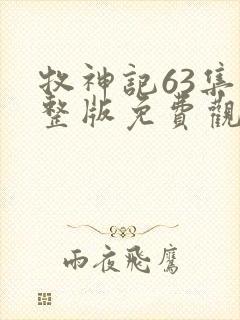 牧神記63集
整版免費觀
雨夜飛鷹